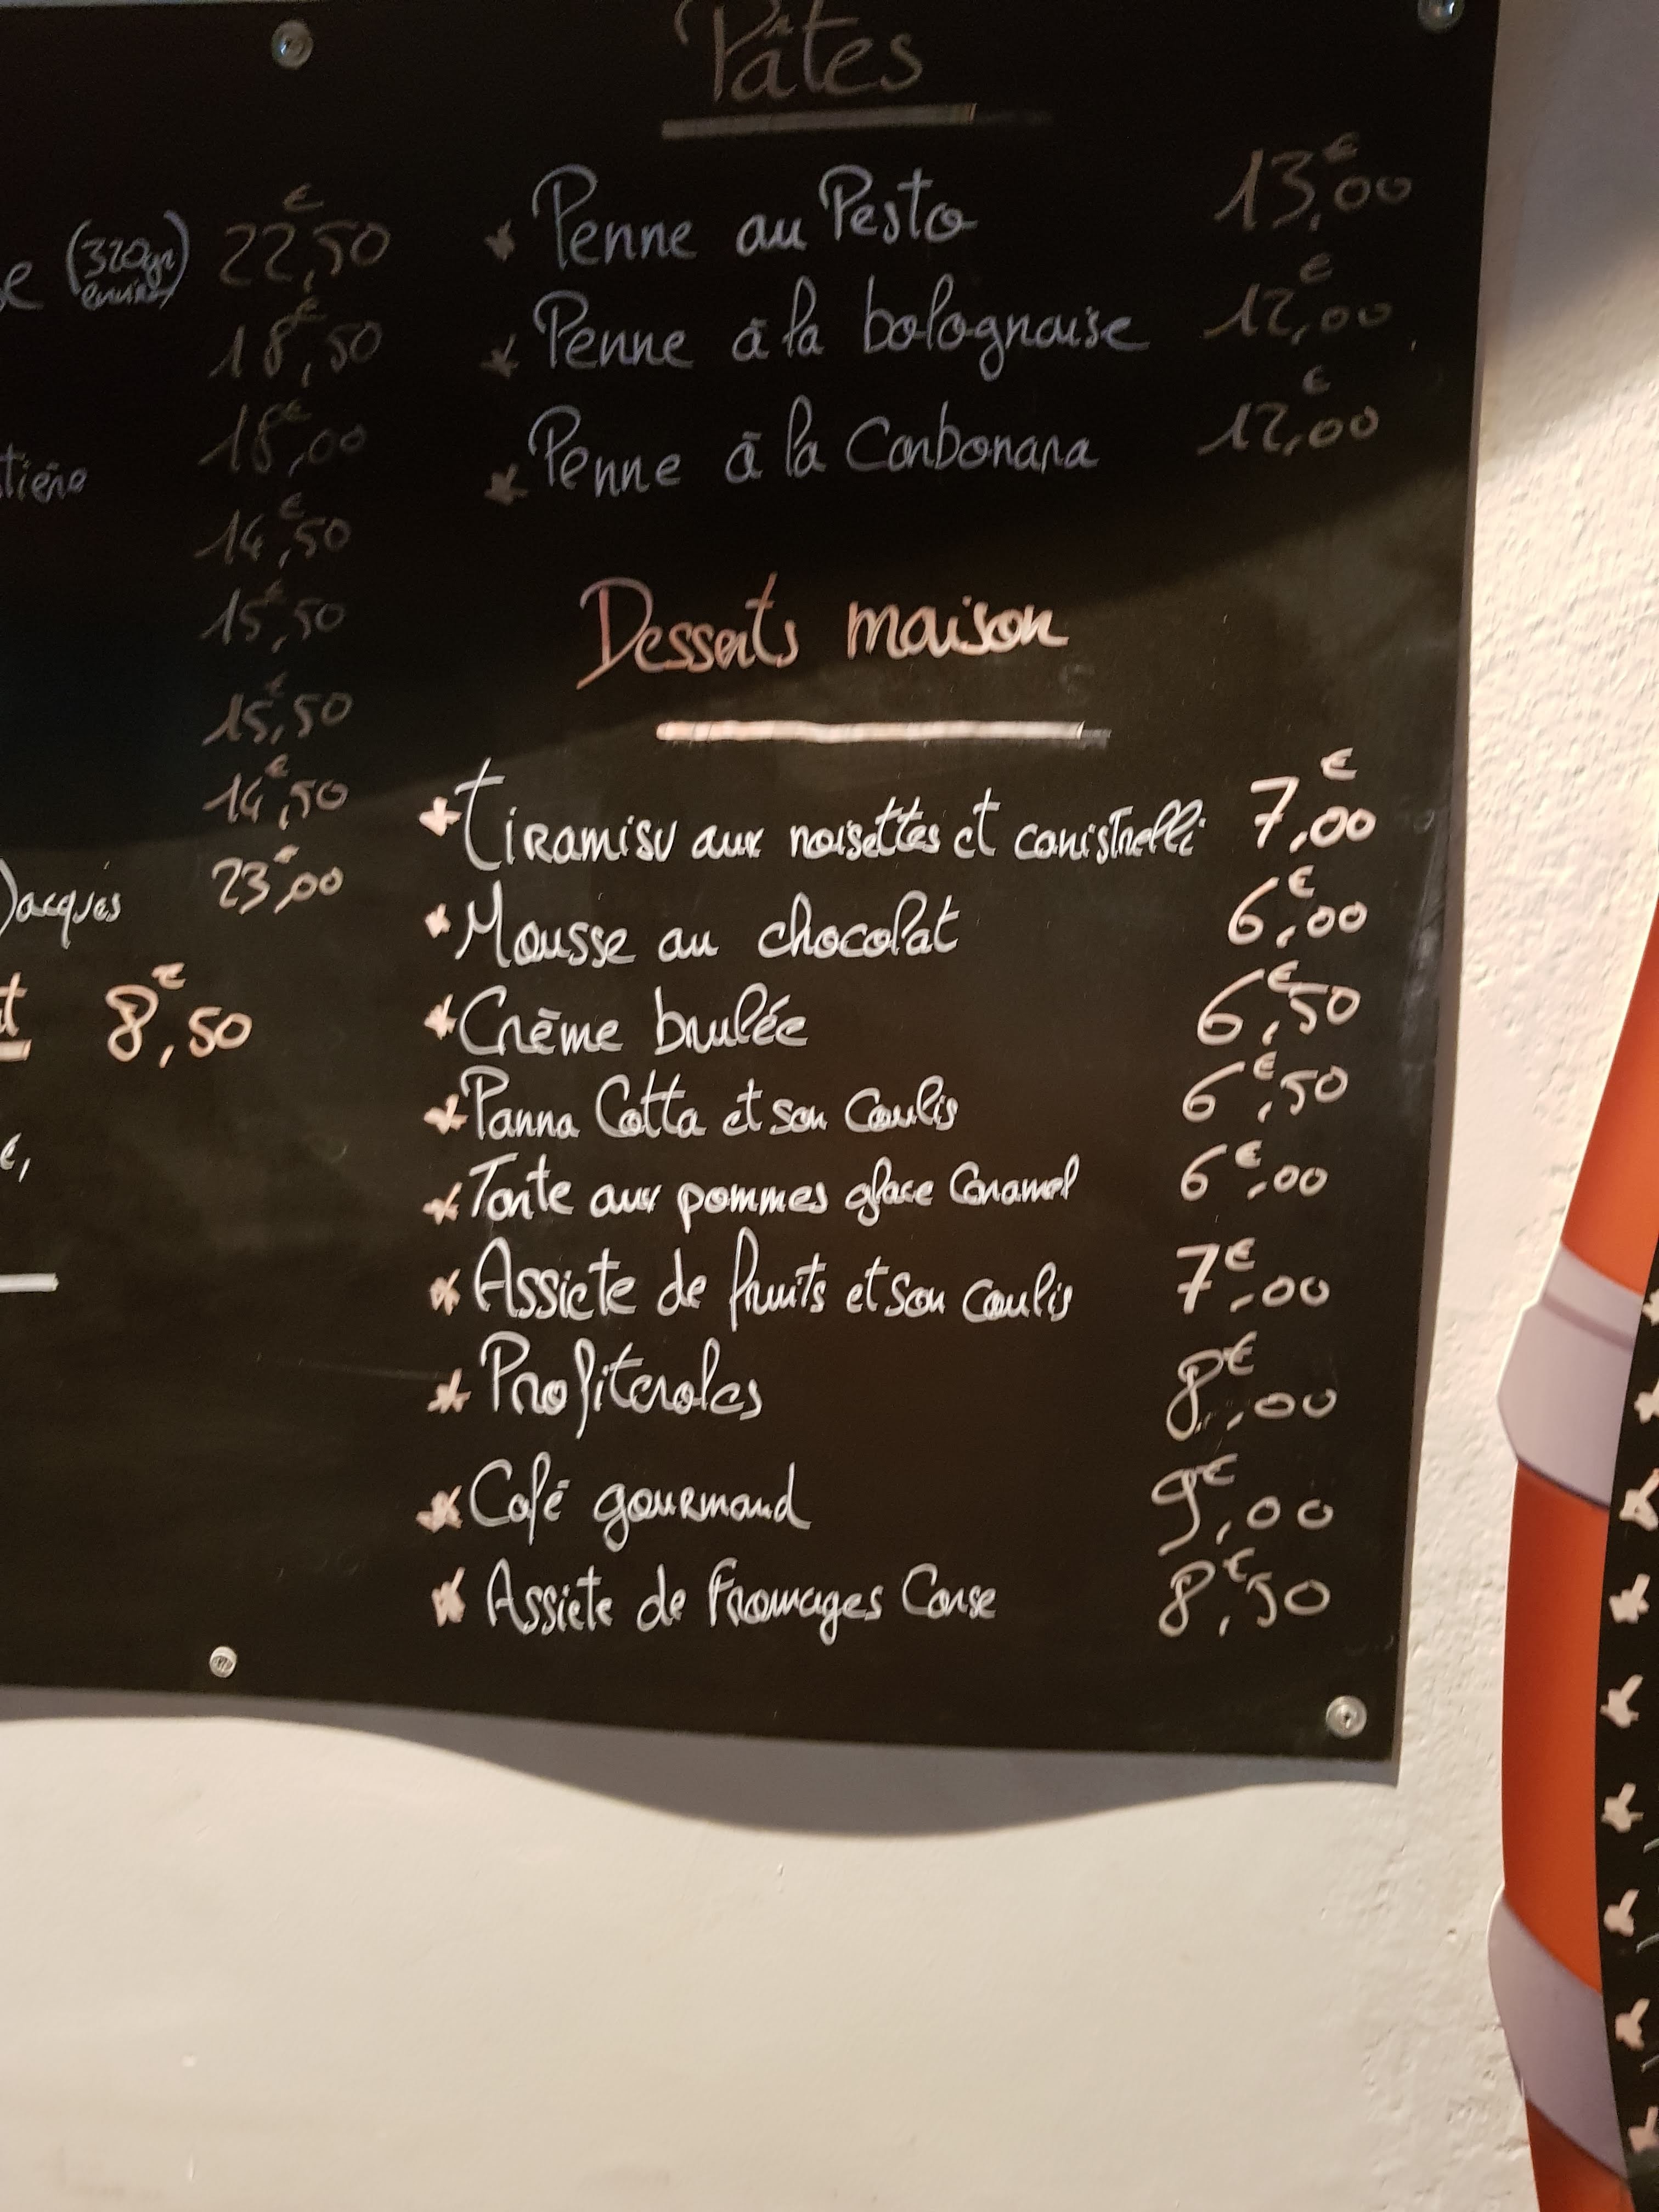 Pâtes
(320gr environ) 22,50€
18,50€
18,00€
14,50€
15,50€
15,50€
14,50€
Jacques 23,00€
8,50€
* Penne au Pesto 13,00€
* Penne à la bolognaise 12,00€
* Penne à la Carbonara 12,00€
Desserts maison
* Tiramisu aux noisettes et canistrelli 7,00€
* Mousse au chocolat 6,00€
* Crème brulée 6,50€
* Panna Cotta et son Coulis 6,50€
* Tarte aux pommes glace Caramel 6,00€
* Assiete de fruits et son coulis 7,00€
* Profiteroles 8,00€
* Café gourmand 9,00€
* Assiete de Fromages Corse 8,50€